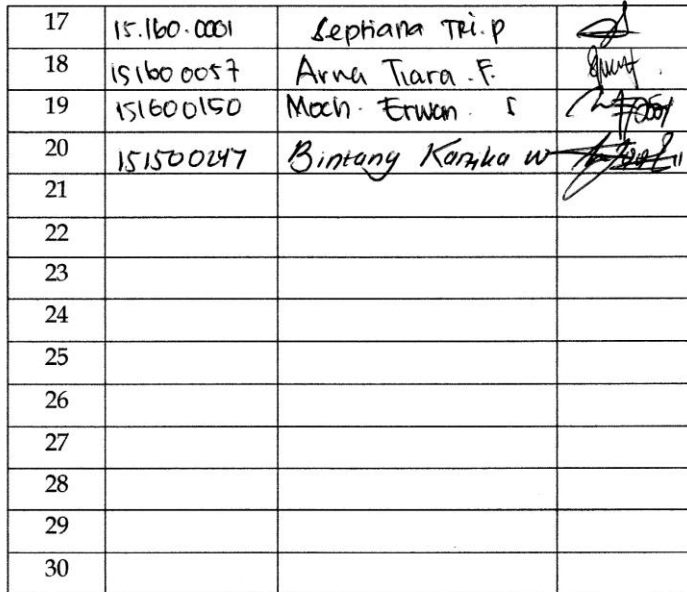 17 15.160.0001 Septiana TRI.P
18 151600057 Arna Tiara .F.
19 151600150 Moch. Erwan S
20 151500247 Bintang Kartika W
21
22
23
24
25
26
27
28
29
30